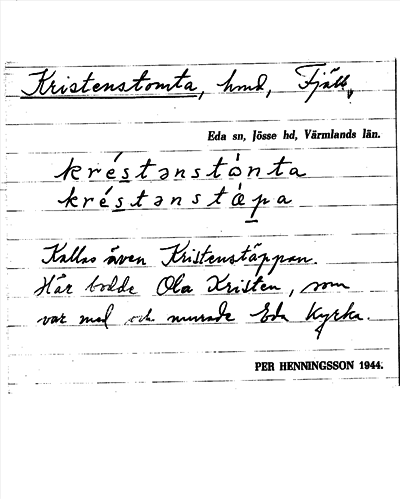 Kristenstomta, hmd, Fjäll,
Eda sn, Jösse hd, Värmlands län.
kréstənstònta
kréstənstäpa
Kallas även Kristenstäppan.
Här bodde Ola Kristen, som
var med och murade Eda Kyrka.
PER HENNINGSSON 1944.